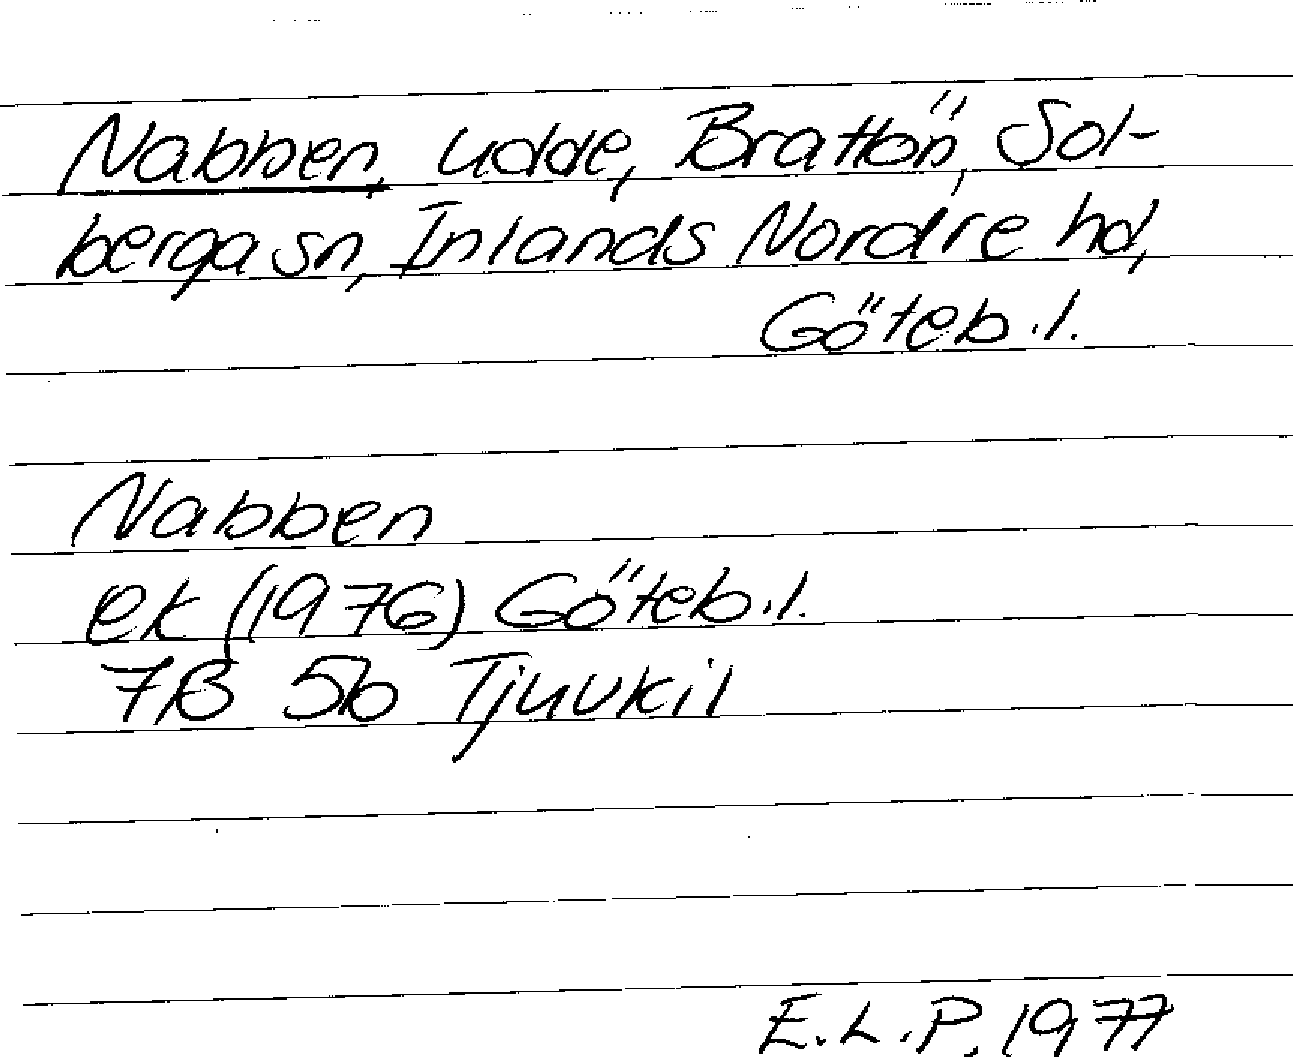 Nabben, udde, Brattön, Sol-
berga sn, Inlands Nordre hd,
Göteb.l.
Nabben
ek (1976) Göteb.l.
7B 5b Tjuvkil
E.L.P. 1977